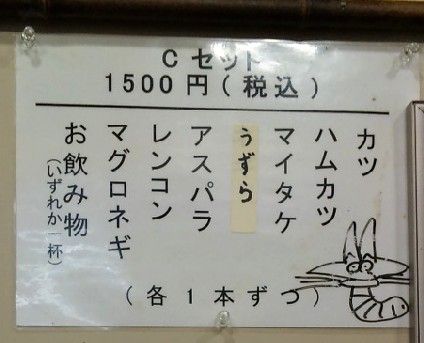 Cセット
1500円(税込)
カツ
ハムカツ
マイタケ
うずら
アスパラ
レンコン
マグロネギ
お飲み物
(いずれか一杯)
(各1本ずつ)